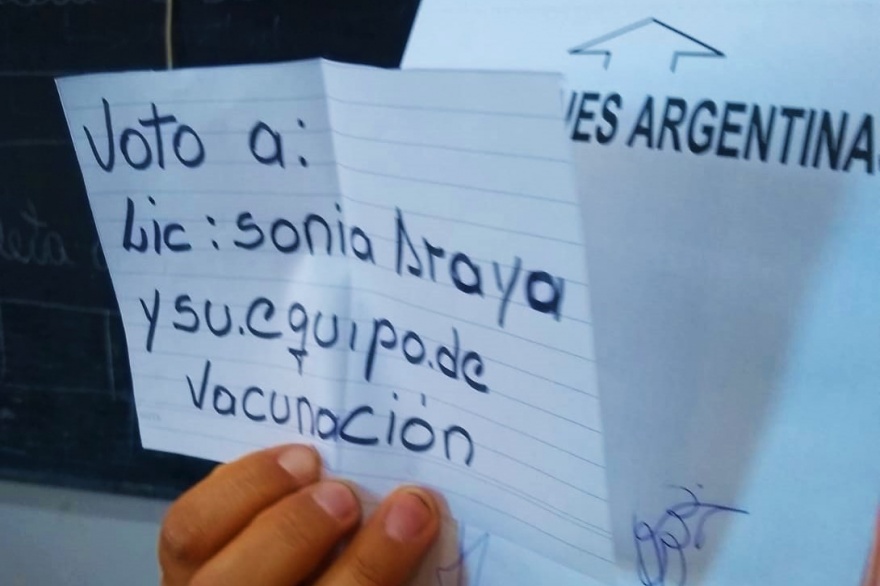 Voto a:
Lic: sonia Araya
y su.equipo.de
Vacunación
ES ARGENTINAS